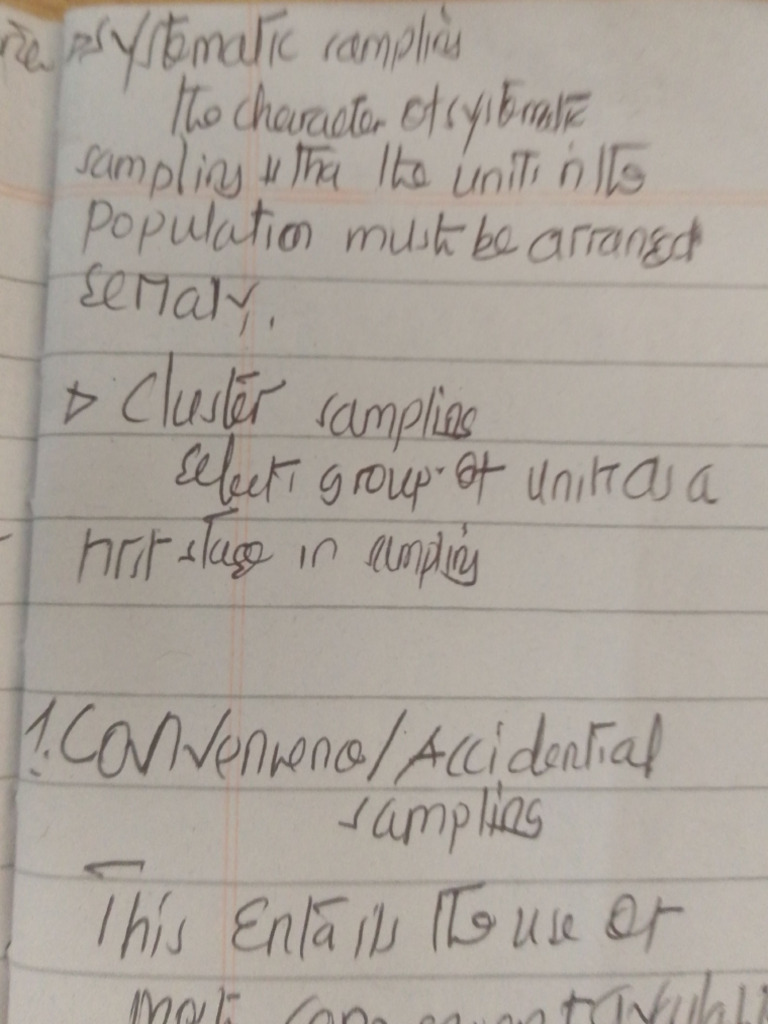 systematic sampling
the character of systematic
sampling is tha the units in the
population must be arranged
serially.
Cluster sampling
select group of unit as a
first stage in sampling
1. Convenience/Accidential
sampling
This Entails the use of
most